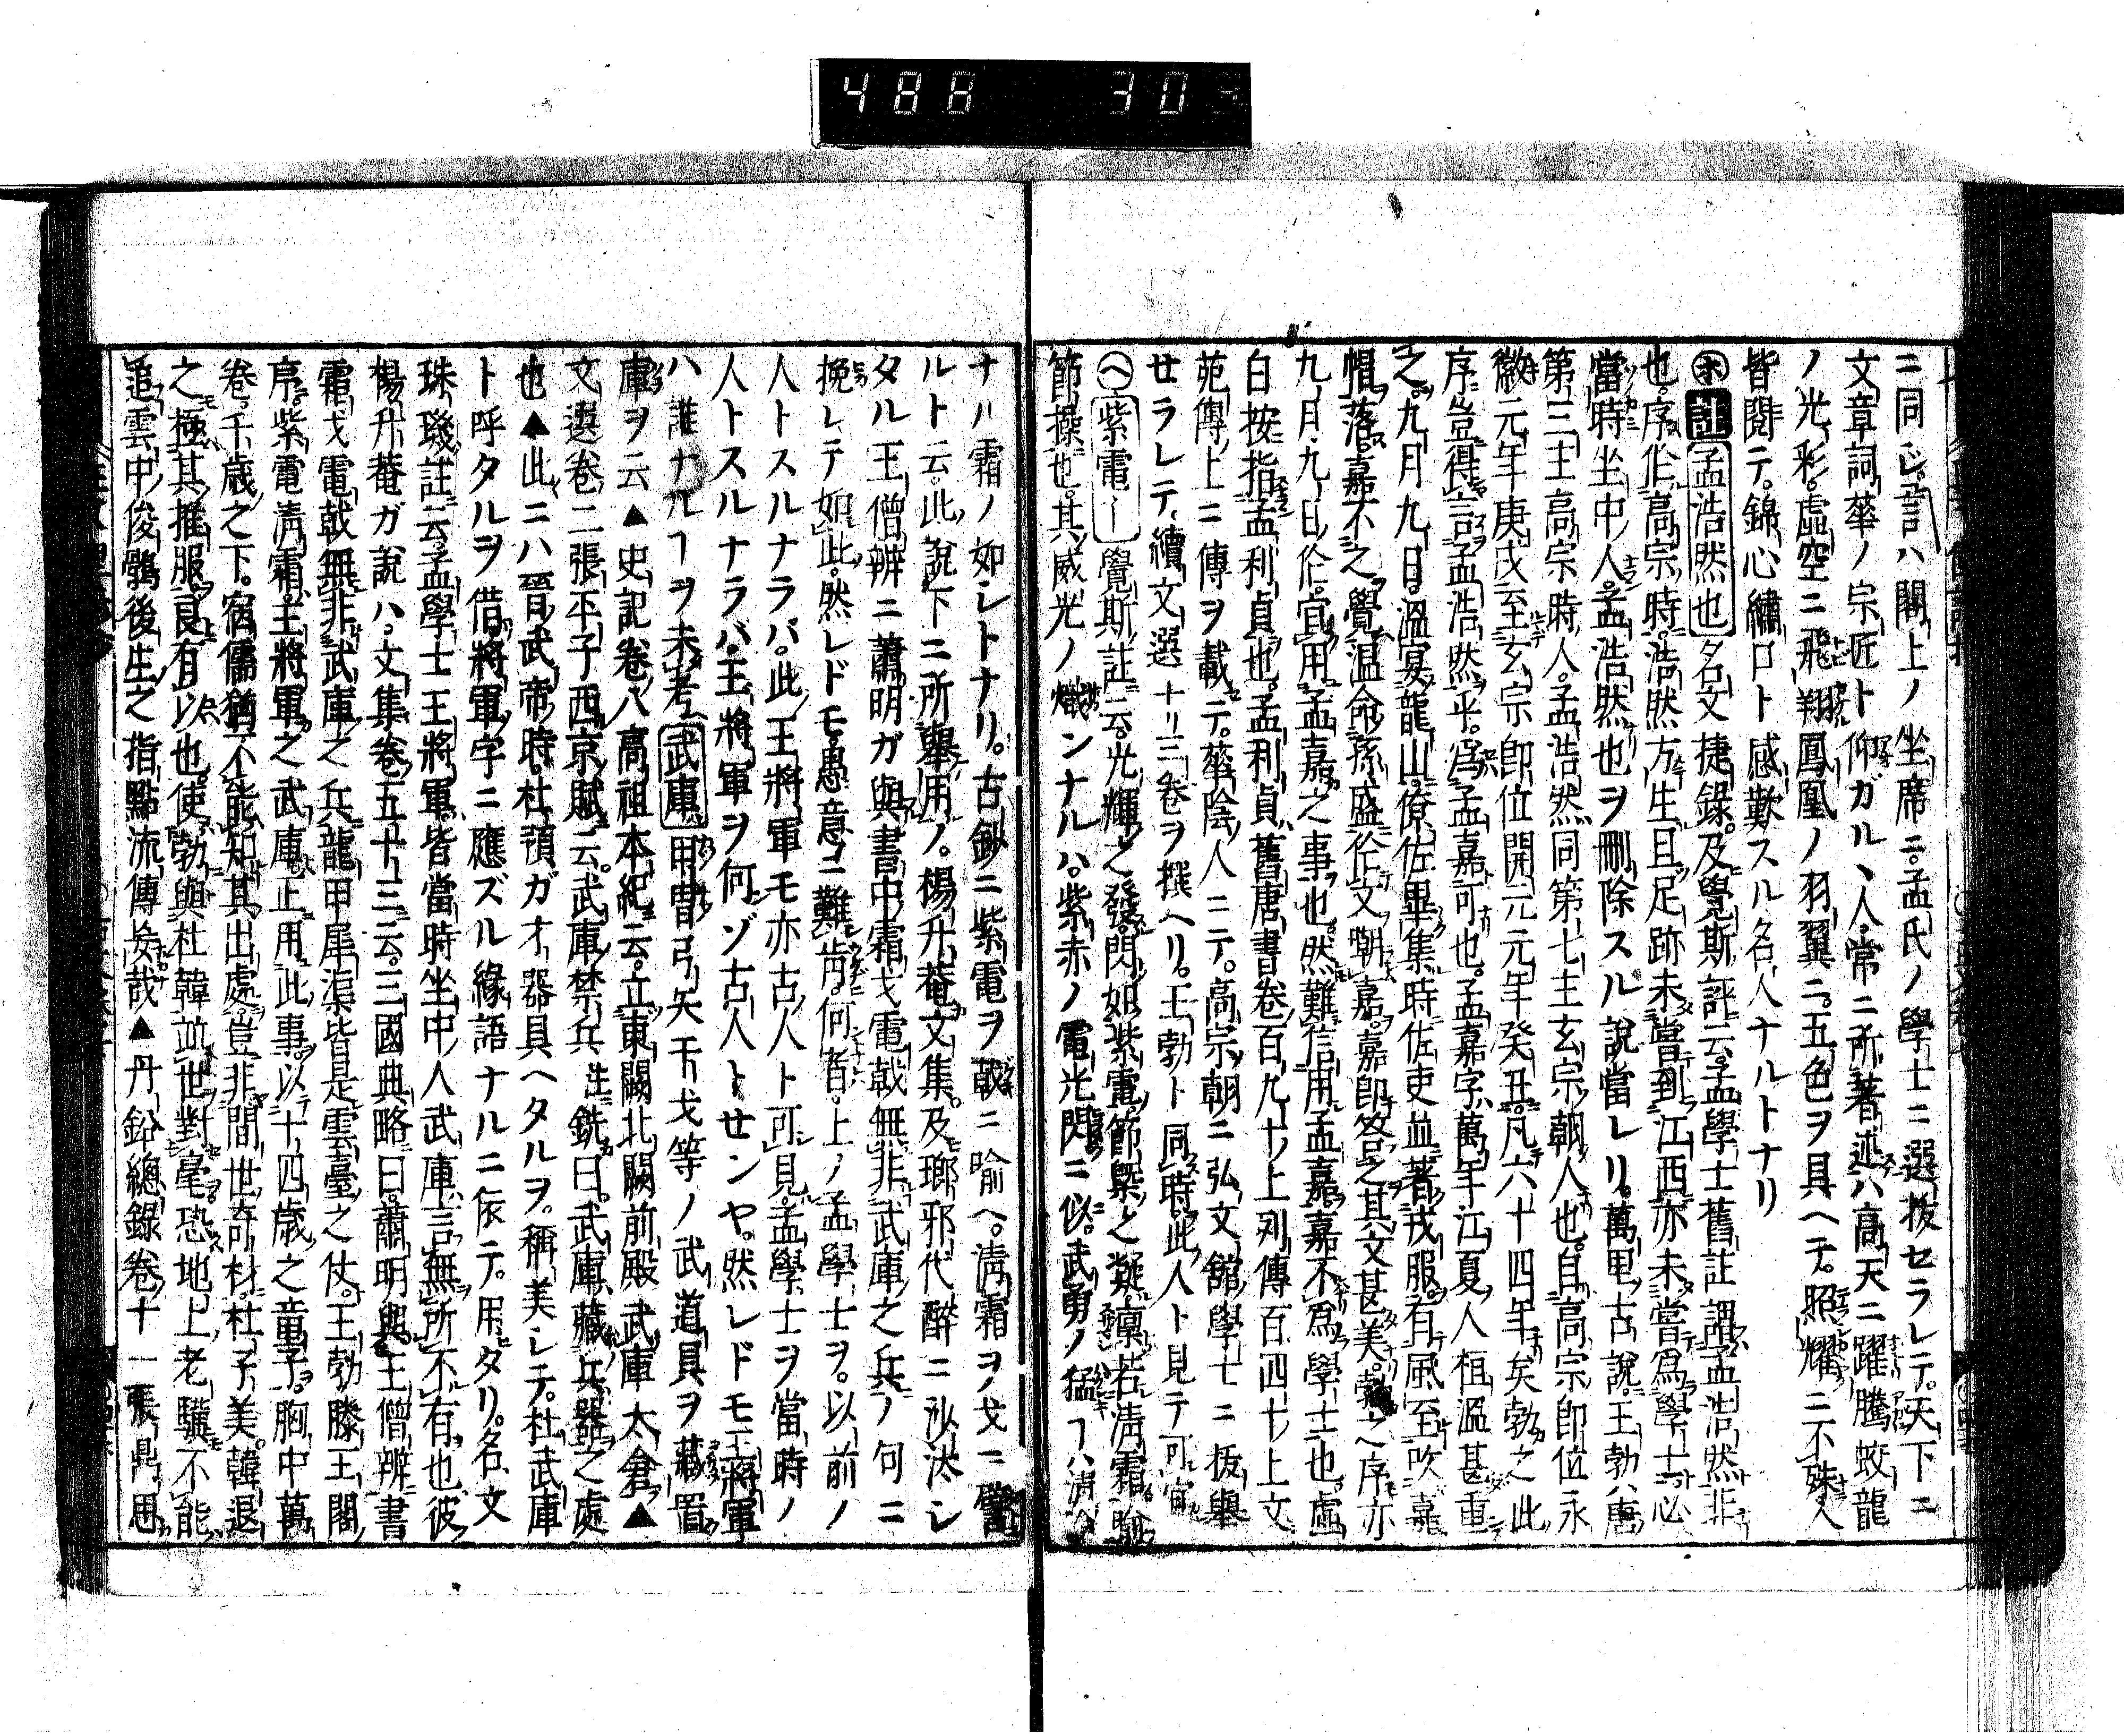 488 303
ニ同シ。言ハ閣上ノ坐席ニ。孟氏ノ學士ニ選拔セラレテ。天下ニ
文章詞華ノ宗匠ト仰ガル丶人。常ニ所著述ハ高天ニ躍騰蛟龍
ノ光彩。虛空ニ飛翔鳳凰ノ羽翼ニ。五色ヲ具ヘテ。照耀ニ不殊。人
皆閱テ。錦心繡口ト感歎スル名人ナルトナリ
㋭註孟浩然也名文捷錄。及覺斯評云。孟學士舊註謂孟浩然非
也。序作高宗時。浩然方生且足跡未嘗到江西亦未嘗爲學士必
當時坐中人。孟浩然也ヲ刪除スル說當レリ。萬里古說。王勃ハ唐
第三主高宗時人。孟浩然同第七主玄宗朝人也。自高宗卽位永
徽元年庚戌至玄宗卽位開元元年癸丑。凡六十四年矣勃之此
序豈得言孟浩然乎。爲孟嘉可也。孟嘉字萬年江夏人桓溫甚重
之。九月九日。溫宴龍山僚佐畢集時佐吏並著戎服。有風至吹嘉
帽落。嘉不之覺溫命孫盛作文嘲嘉。嘉卽答之其文甚美。勃之序亦
九月九日作。宜用孟嘉之事也。然難信用孟嘉嘉不爲學士也。虛
白按指孟利貞也。孟利貞舊唐書卷百九十上列傳百四十上文
苑傳上ニ傳ヲ載テ。華陰人ニテ。高宗朝ニ弘文館學士ニ拔舉
セラレテ續文選十三卷ヲ撰ヘリ。王勃ト同時。此人ト見テ可宜
㋬紫電〡覺斯註云。光輝之發。閃如紫電。節槩之凝。凛若淸霜
節操也。其威光ノ熾ンナルハ。紫赤ノ電光閃ニ似。武勇ノ猛ヿハ淸ヘ
ナル霜ノ如シトナリ。古鈔ニ紫電ヲ戟ニ喩ヘ。淸霜ヲ戈ニ譬
ルト云。此說下ニ所舉用ノ。楊升菴文集。及瑯邪代醉ニ沙汰シ
タル王僧辨ニ蕭明ガ與書中霜戈電戟無非武庫之兵ノ句ニ
挽レテ如此。然レドモ愚意ニ難肯。何者。上ノ孟學士ヲ。以前ノ
人トスルナラバ。此王將軍モ亦古人ト可見。孟學士ヲ當時ノ
人トスルナラバ。王將軍ヲ何ゾ古人トセンヤ。然レドモ王將軍
ハ誰ナルヿヲ未考武庫甲冑弓矢干戈等ノ武道具ヲ藏置
庫ヲ云▲史記卷八高祖本紀云。立東闕北闕前殿武庫太倉▲
文選卷二張平子西京賦云。武庫禁兵註銑曰。武庫藏兵器之處
也▲此ニハ晉武帝時。杜預ガ才器具ヘタルヲ。稱美シテ。杜武庫
ト呼タルヲ借。將軍字ニ應ズル緣語ナルニ依テ。用タリ。名文
珠璣註云。孟學士王將軍。皆當時坐中人武庫言無所不有也彼
楊升菴ガ說ハ。文集卷五十三云。三國典略曰。蕭明與王僧辨書
霜戈電戟無非武庫之兵龍甲犀渠皆是雲臺之仗。王勃滕王閣
序。紫電淸霜。王將軍之武庫。正用此事。以十四歲之童子。胸中萬
卷。千歲之下。宿儒猶不能知其出處。豈非間世奇材。杜子美。韓退
之極其推服良有以也。使勃與杜韓並世對毫。恐地上老驥不能
追雲中俊鶻後生之指點流傳妄哉▲丹鉛總錄卷十一張禺思